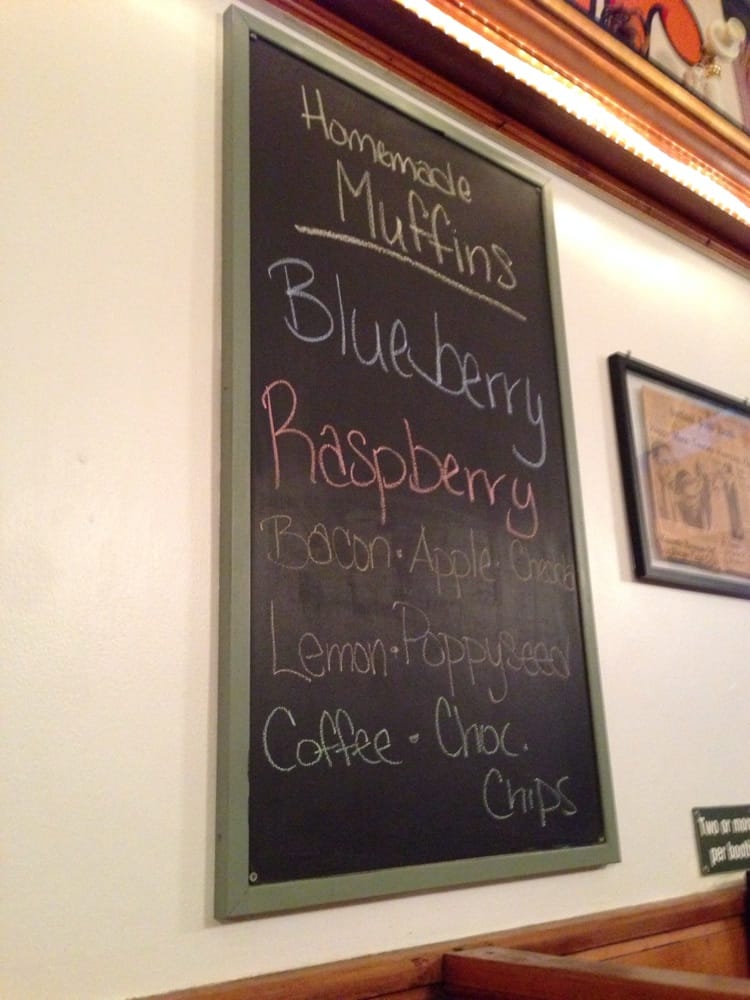 Homemade
Muffins
Blueberry
Raspberry
Bacon · Apple ·
Lemon · Poppyseed
Coffee · Choc.
Chips
Two or
per